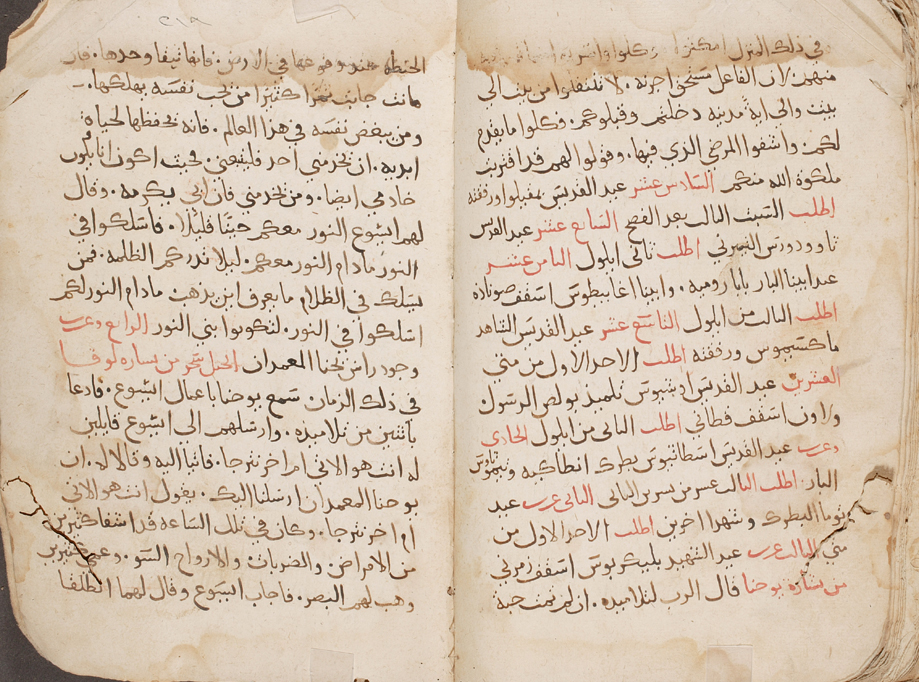 في ذلك المنزل امكثوا وكلوا واشربوا
منهم. لان الفاعل مستحق اجرته. لا تنتقلوا من بيت الى
بيت والى اية مدينه دخلتم وقبلوكم. فكلوا ما يقدم
لكم. واشفوا المرضى الذي فيها. وقولوا لهم قد اقتربت
ملكوة الله منكم السادس عشر عيد القديس ورفقته
اطلب السبت التالت بعد الفصح السابع عشر عيد القدس
تاوودورس اطلب تاني ايلول التامن عشر
عيد ابينا البار بابا روميه. وابينا اغابيطوس اسقف صوناده
اطلب التالت من ايلول التاسع عشر عيد القديس الشاهد
ماكسيموس ورفقته اطلب الاحد الاول من متي
العشرين عيد القديس تلميذ بولص الرسول
ولاون اسقف قطاني اطلب التاني من ايلول الحادي
عيد القديس اسطاتيوس بطرك انطاكيه
البار. اطلب التالت عسر من تسرين التاني التاني عيد
توما البطرك وشهدا اخرين اطلب الاحد الاول من
متي التالت عيد الشهيد بليكربوس اسقف زمرني
من بشاره يوحنا قال الرب لتلاميذه. ان لم تمت حبة
٢١٩
الحنطه عند وقوعها في الارض. فانها تبقا وحدها. فان
ماتت جابت ثمرا كثيرا من يحب نفسه يهلكها.
ومن يبغض نفسه في هذا العالم. فانه يحفظها لحياة
ابديه. ان يخدمني احد فليتبعني. فحيت اكون انا يكون
خادمي ايضا. ومن يخدمني فان ابي يكرمه. وقال
لهم ايسوع النور معكم حينا قليلا. فاسلكوا في
النور ما دام النور معكم. ليلا تدرككم الظلمه. فمن
يسلك في الظلام ما يعرف اين يذهب ما دام النور لكم
اسلكوا في النور. لتكونوا بني النور الرابع
وجود راس يحنا المعمدان من بشاره لوقا
في ذلك الزمان سمع يوحنا باعمال ايسوع. فادعا
باتنين من تلاميذه. وارسلهم الي ايسوع قايلين
له انت هو الاتي ام اخر نترجا. فاتيا اليه وقالا له. ان
يوحنا المعمدان ارسلنا اليك. يقول انت هو الاتي
ام اخر نترجا. وكان في تلك الساعه قد اشفا كثيرين
من الامراض والضربات والارواح السو. وعمي كثيرين
وهب لهم البصر. فاجاب ايسوع وقال لهما انطلقا